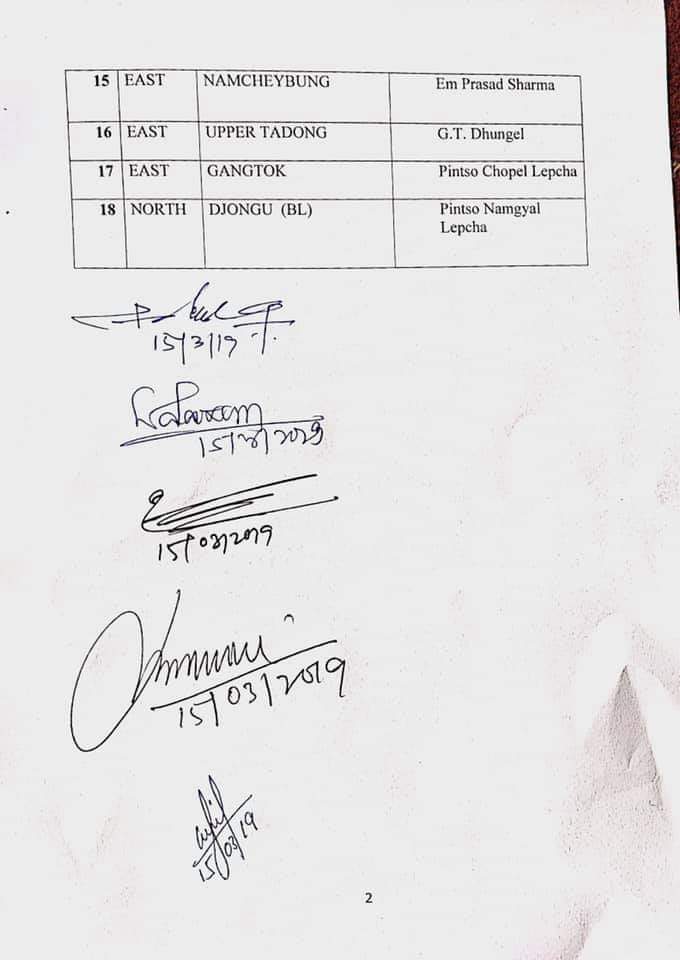 15 EAST NAMCHEYBUNG Em Prasad Sharma
16 EAST UPPER TADONG G.T. Dhungel
17 EAST GANGTOK Pintso Chopel Lepcha
18 NORTH DJONGU (BL) Pintso Namgyal
Lepcha
15/3/19
15/03/2019
15/03/2019
15/03/2019
15/03/19
2